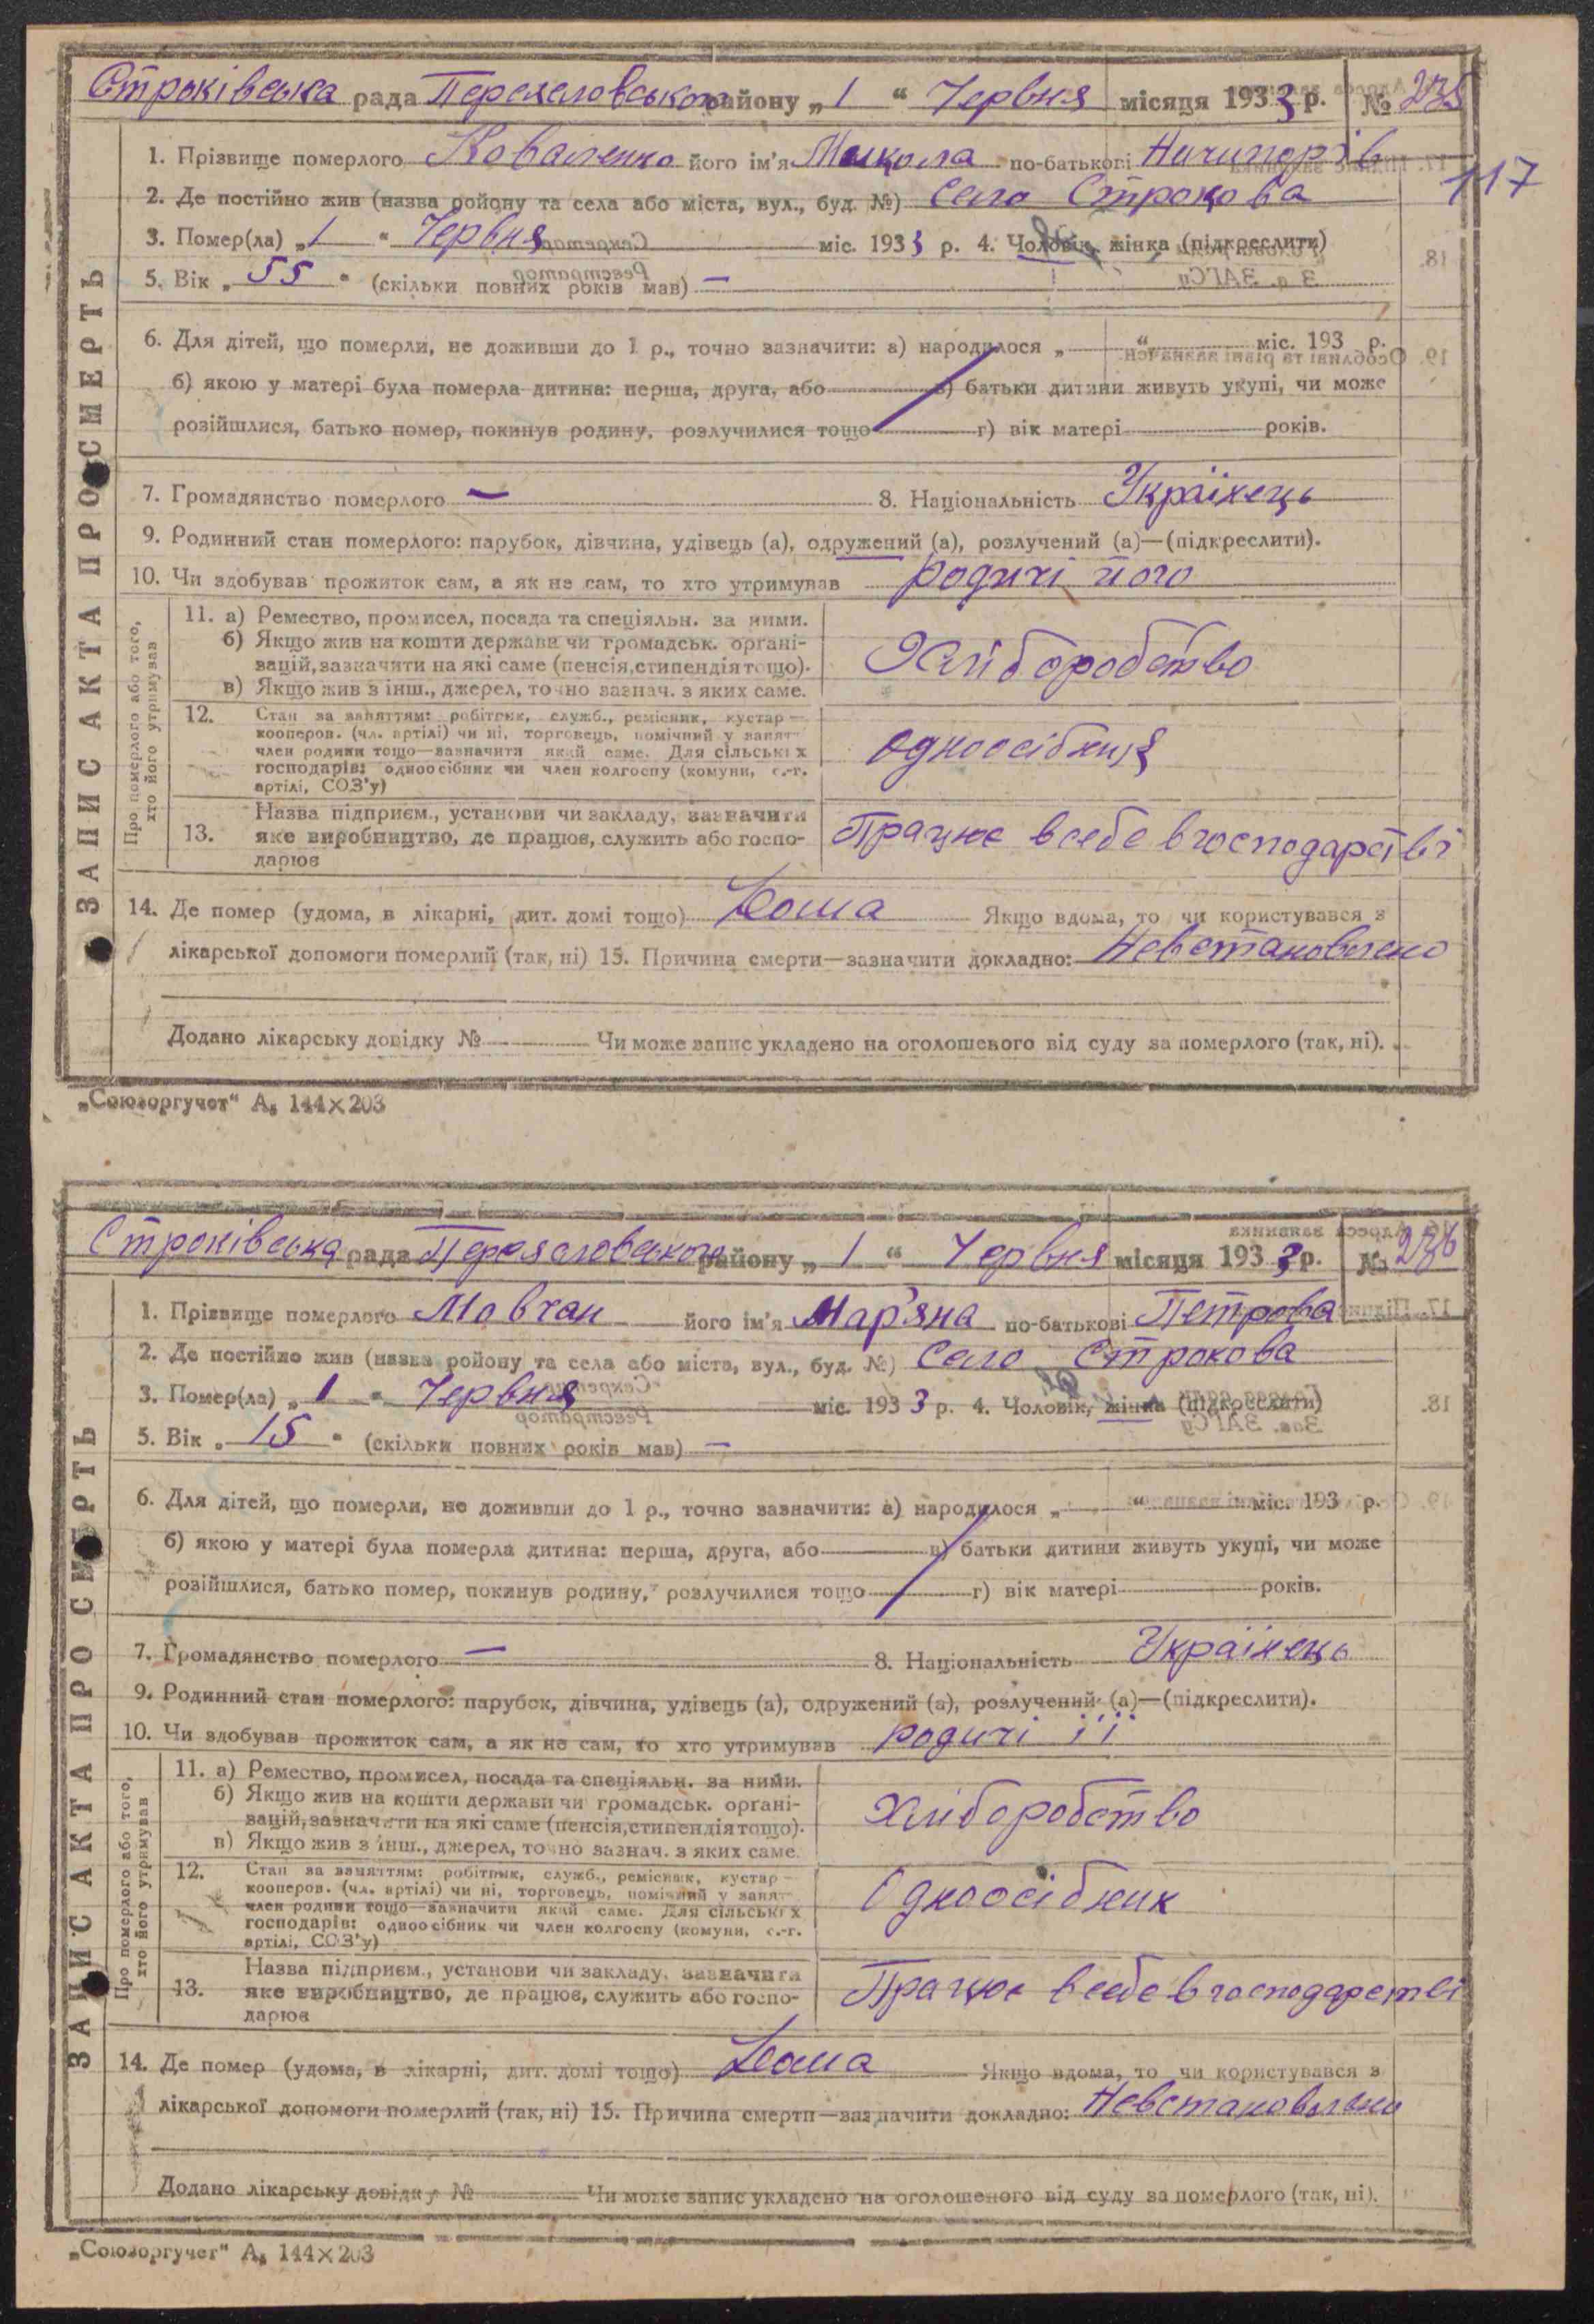 Строківська рада Переяславського району „ 1 “ Червня місяця 1933 р. № 235
1. Прізвище померлого Коваленко його ім'я Микола по-батькові Ничипорів
117
2. Де постійно жив (назва району та села або міста, вул., буд. №) село Строкова
3. Помер(ла) „ 1 “ Червня міс. 1933 р. 4. Чоловік, жінка (підкреслити)
5. Вік „ 55 “ (скільки повних років мав) —
6. Для дітей, що померли, не доживши до 1 р., точно зазначити: а) народилося „ “ міс. 193 р.
б) якою у матері була померла дитина: перша, друга, або в) батьки дитини живуть укупі, чи може
розійшлися, батько помер, покинув родину, розлучилися тощо г) вік матері років.
7. Громадянство померлого — 8. Національність Українець
9. Родинний стан померлого: парубок, дівчина, удівець (а), одружений (а), розлучений (а)—(підкреслити).
10. Чи здобував прожиток сам, а як не сам, то хто утримував родичі його
ЗАПИС АКТА ПРО СМЕРТЬ
Про померлого або того, хто його утримував
11. а) Ремество, промисел, посада та спеціяльн. за ними.
б) Якщо жив на кошти держави чи громадськ. органі-
зацій, зазначити на які саме (пенсія, стипендія тощо).
в) Якщо жив з інш., джерел, точно зазнач. з яких саме.
Хліборобство
12. Стан за заняттям: робітник, служб., ремісник, кустар—
кооперов. (чл. артілі) чи ні, торговець, помічний у занят
член родини тощо—зазначити який саме. Для сільських
господарів: одноосібник чи член колгоспу (комуни, с.-г.
артілі, СОЗ'у)
13. Назва підприєм., установи чи закладу, зазначити
яке виробництво, де працює, служить або госпо-
дарює
Працює в себе в господарстві
14. Де помер (удома, в лікарні, дит. домі тощо) Дома Якщо вдома, то чи користувався з
лікарської допомоги померлий (так, ні) 15. Причина смерти—зазначити докладно: Невстановлено
Додано лікарську довідку № Чи може запис укладено на оголошеного від суду за померлого (так, ні).
„Союзоргучет“ А₅ 144×203
Строківська рада Переяславського району „ 1 “ Червня місяця 1933 р. № 236
1. Прізвище померлого Мовчан його ім'я Мар'яна по-батькові Петрова
2. Де постійно жив (назва району та села або міста, вул., буд. №) село Строкова
3. Помер(ла) „ 1 “ Червня міс. 1933 р. 4. Чоловік, жінка (підкреслити)
5. Вік „ 15 “ (скільки повних років мав) —
6. Для дітей, що померли, не доживши до 1 р., точно зазначити: а) народилося „ “ міс. 193 р.
б) якою у матері була померла дитина: перша, друга, або в) батьки дитини живуть укупі, чи може
розійшлися, батько помер, покинув родину, розлучилися тощо г) вік матері років.
7. Громадянство померлого — 8. Національність Українець
9. Родинний стан померлого: парубок, дівчина, удівець (а), одружений (а), розлучений (а)—(підкреслити).
10. Чи здобував прожиток сам, а як не сам, то хто утримував родичі її
ЗАПИС АКТА ПРО СМЕРТЬ
Про померлого або того, хто його утримував
11. а) Ремество, промисел, посада та спеціяльн. за ними.
б) Якщо жив на кошти держави чи громадськ. органі-
зацій, зазначити на які саме (пенсія, стипендія тощо).
в) Якщо жив з інш., джерел, точно зазнач. з яких саме.
Хліборобство
12. Стан за заняттям: робітник, служб., ремісник, кустар—
кооперов. (чл. артілі) чи ні, торговець, помічний у занят
член родини тощо—зазначити який саме. Для сільських
господарів: одноосібник чи член колгоспу (комуни, с.-г.
артілі, СОЗ'у)
Одноосібник
13. Назва підприєм., установи чи закладу, зазначити
яке виробництво, де працює, служить або госпо-
дарює
Працює в себе в господарстві
14. Де помер (удома, в лікарні, дит. домі тощо) Дома Якщо вдома, то чи користувався з
лікарської допомоги померлий (так, ні) 15. Причина смерти—зазначити докладно: Невстановлено
Додано лікарську довідку № Чи може запис укладено на оголошеного від суду за померлого (так, ні).
„Союзоргучет“ А₅ 144×203